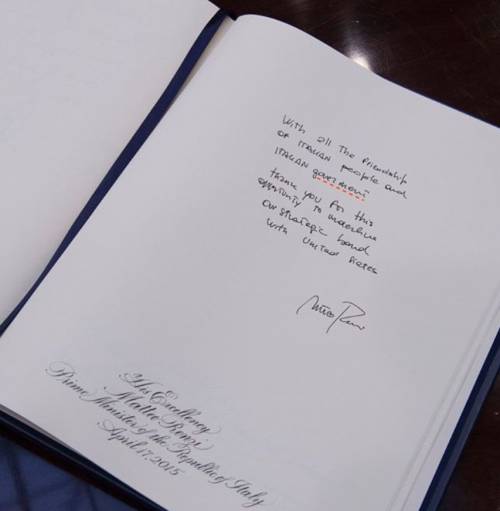 With all the friendship
of ITALIAN people and
ITALIAN goverment
thank you for this
opportunity to underline
our strategic bond
with United States
His Excellency
Matteo Renzi
Prime Minister of the Republic of Italy
April 17, 2015